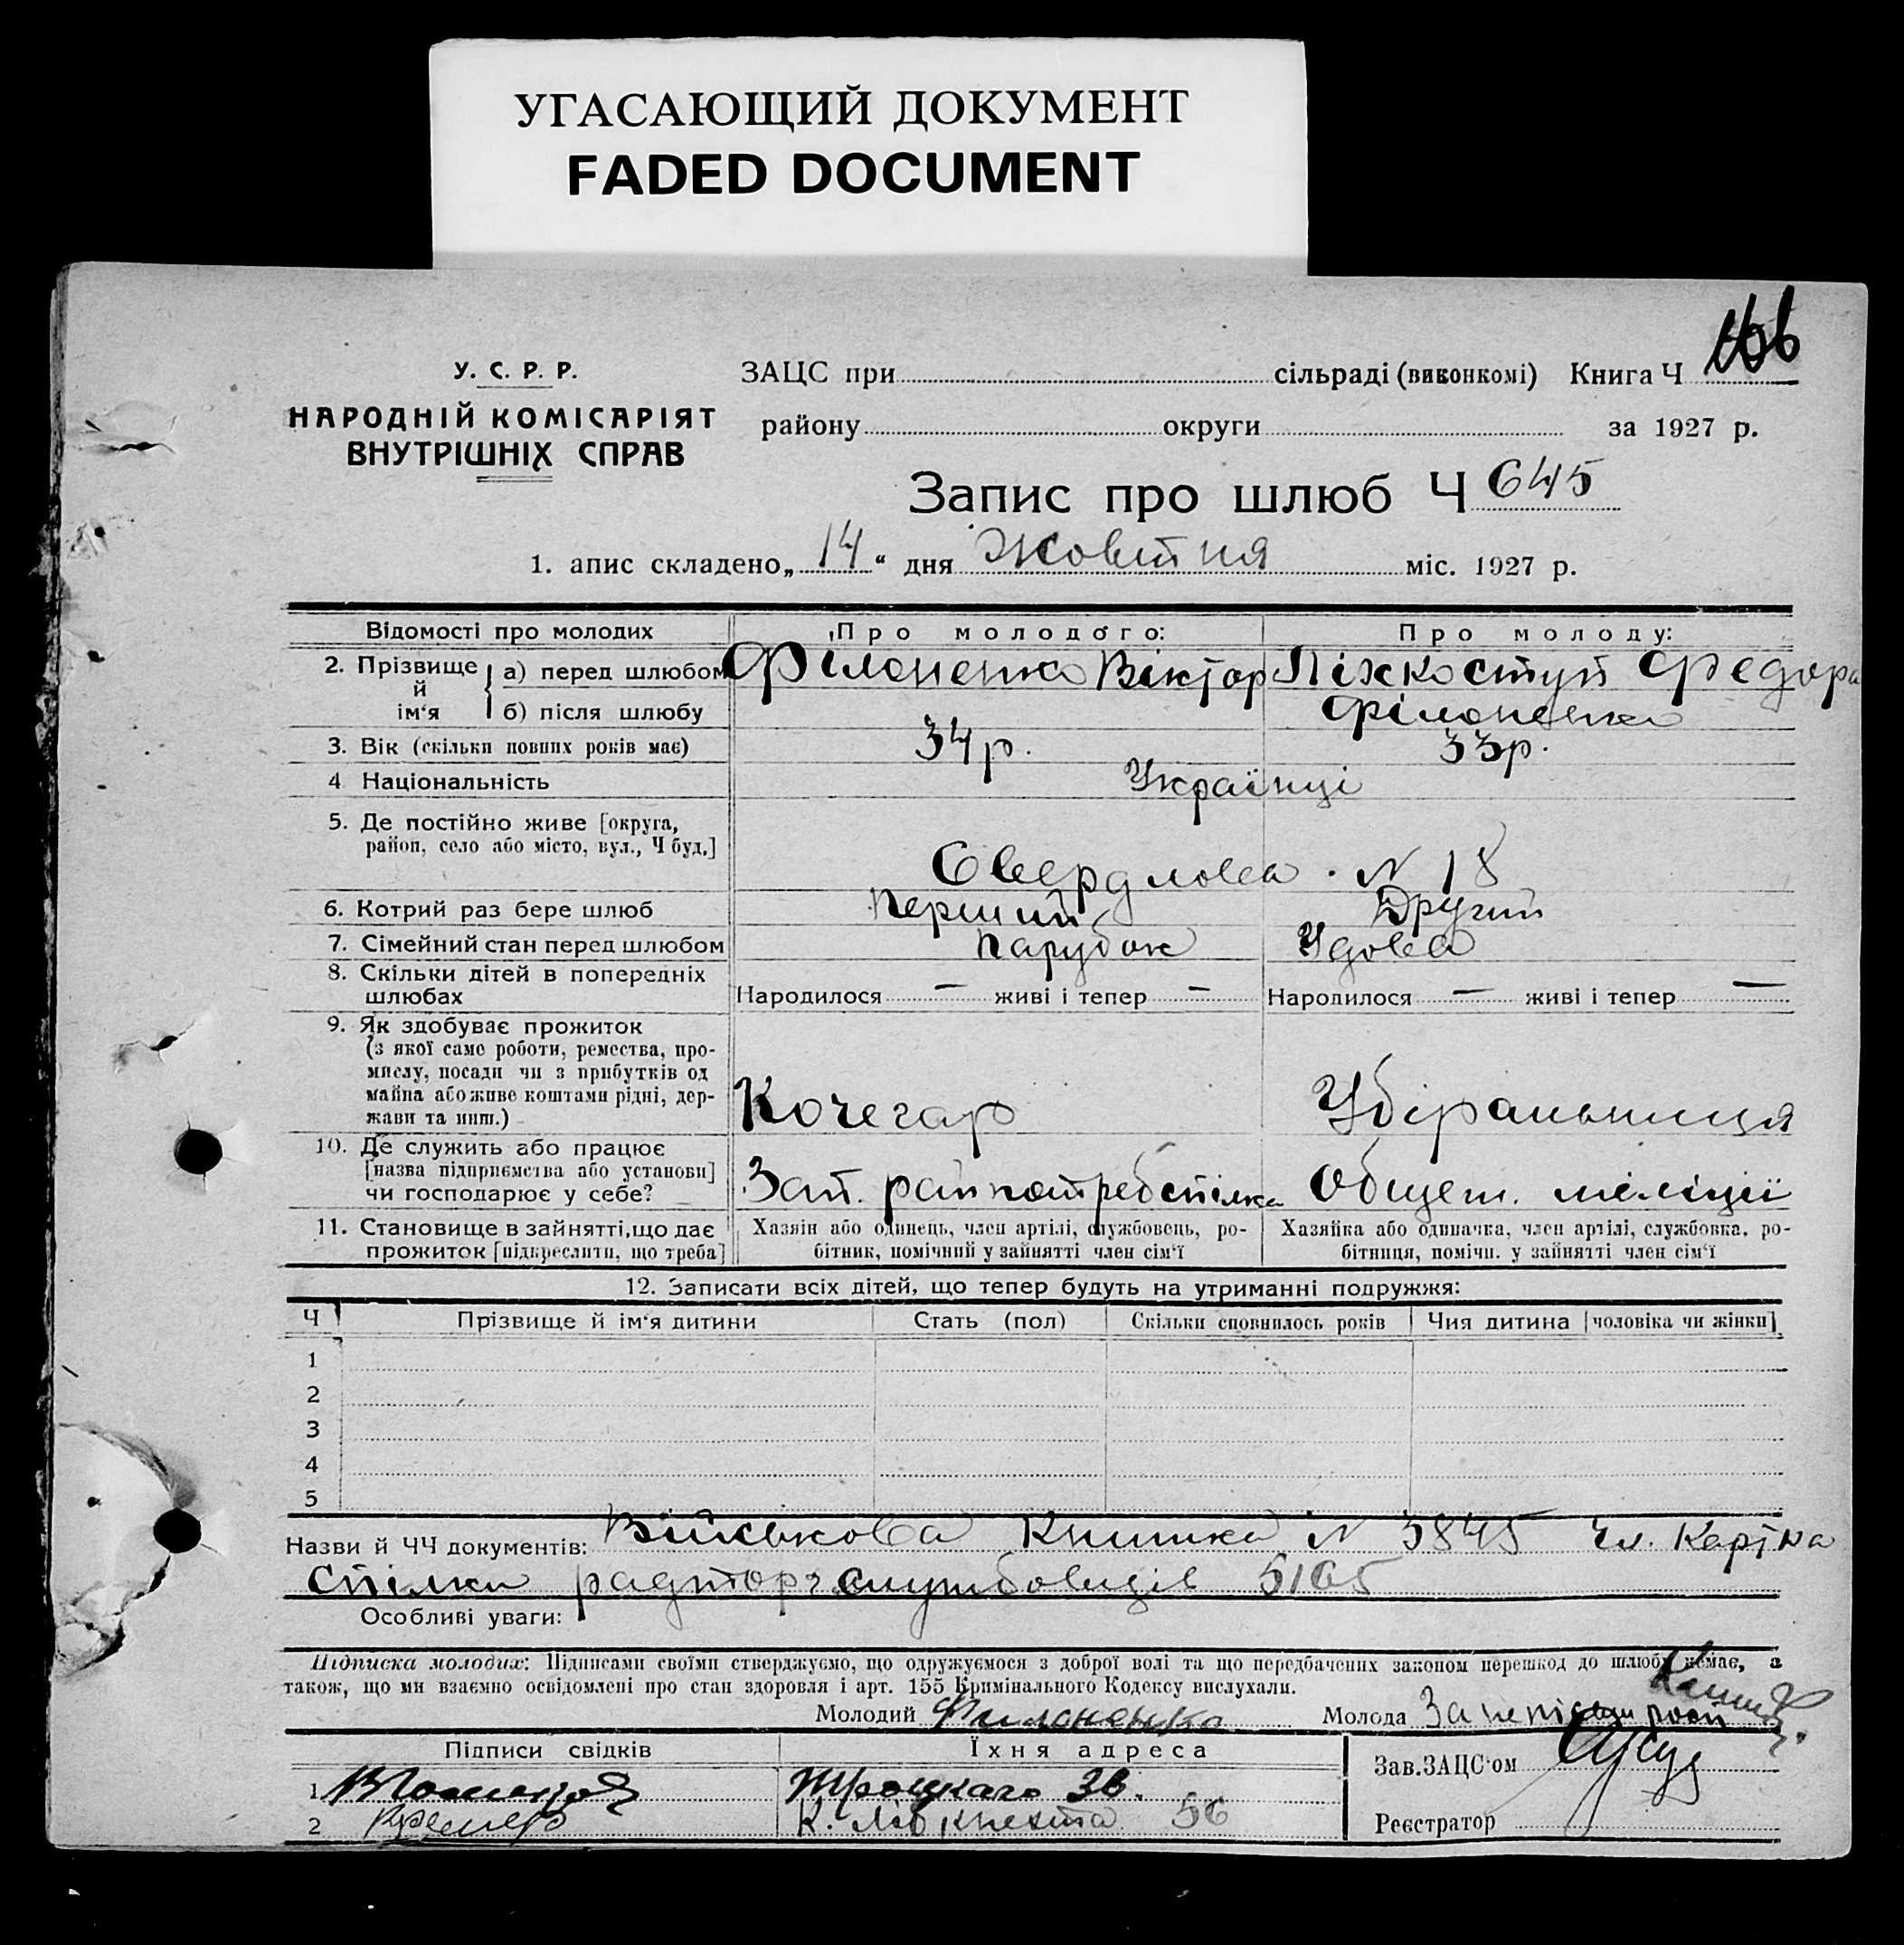 УГАСАЮЩИЙ ДОКУМЕНТ
FADED DOCUMENT
У. С. Р. Р.
НАРОДНІЙ КОМІСАРІЯТ
ВНУТРІШНІХ СПРАВ
ЗАЦС при сільраді (виконкомі) Книга Ч
району округи за 1927 р.
Запис про шлюб Ч 645
1. апис складено „14“ дня Жовтня міс. 1927 р.
Відомості про молодих Про молодого: Про молоду:
2. Прізвище й ім'я а) перед шлюбом Філоненко Віктор Ліхкоступ Федора
б) після шлюбу Філоненко
3. Вік (скільки повних років має) 34 р. 33 р.
4 Національність Українці
5. Де постійно живе [округа,
район, село або місто, вул., Ч буд.] Свердлова N 18
6. Котрий раз бере шлюб Перший Другий
7. Сімейний стан перед шлюбом Парубок Удова
8. Скільки дітей в попередніх
шлюбах Народилося — живі і тепер — Народилося — живі і тепер —
9. Як здобуває прожиток
(з якої саме роботи, ремества, про-
мислу, посади чи з прибутків од
майна або живе коштами рідні, дер-
жави та инш.) Кочегар Убіральниця
10. Де служить або працює
[назва підприємства або установи]
чи господарює у себе? Зап. райпотребспілка Общеж. міліції
11. Становище в зайнятті, що дає
прожиток [підкреслити, що треба]
Хазяін або одинець, член артілі, службовець, ро-
бітник, помічний у зайнятті член сім'ї
Хазяйка або одиначка, член артілі, службовка, ро-
бітниця, помічн. у зайнятті член сім'ї
12. Записати всіх дітей, що тепер будуть на утриманні подружжя:
Ч Прізвище й ім'я дитини Стать (пол) Скільки сповнилось років Чия дитина [чоловіка чи жінки]
1
2
3
4
5
Назви й ЧЧ документів: Військова Книжка N 3845 чл. Картка
спілки радторгслужбовців 5165
Особливі уваги:
Підписка молодих: Підписами своїми стверджуємо, що одружуємося з доброї волі та що передбачених законом перешкод до шлюбу немає, а
також, що ми взаємно освідомлені про стан здоровля і арт. 155 Кримінального Кодексу вислухали.
Молодий Филоненко Молода За неписьм
Підписи свідків Їхня адреса Зав. ЗАЦС'ом
1 Троцкаго 36.
2 К. Лібкнехта 56 Реєстратор